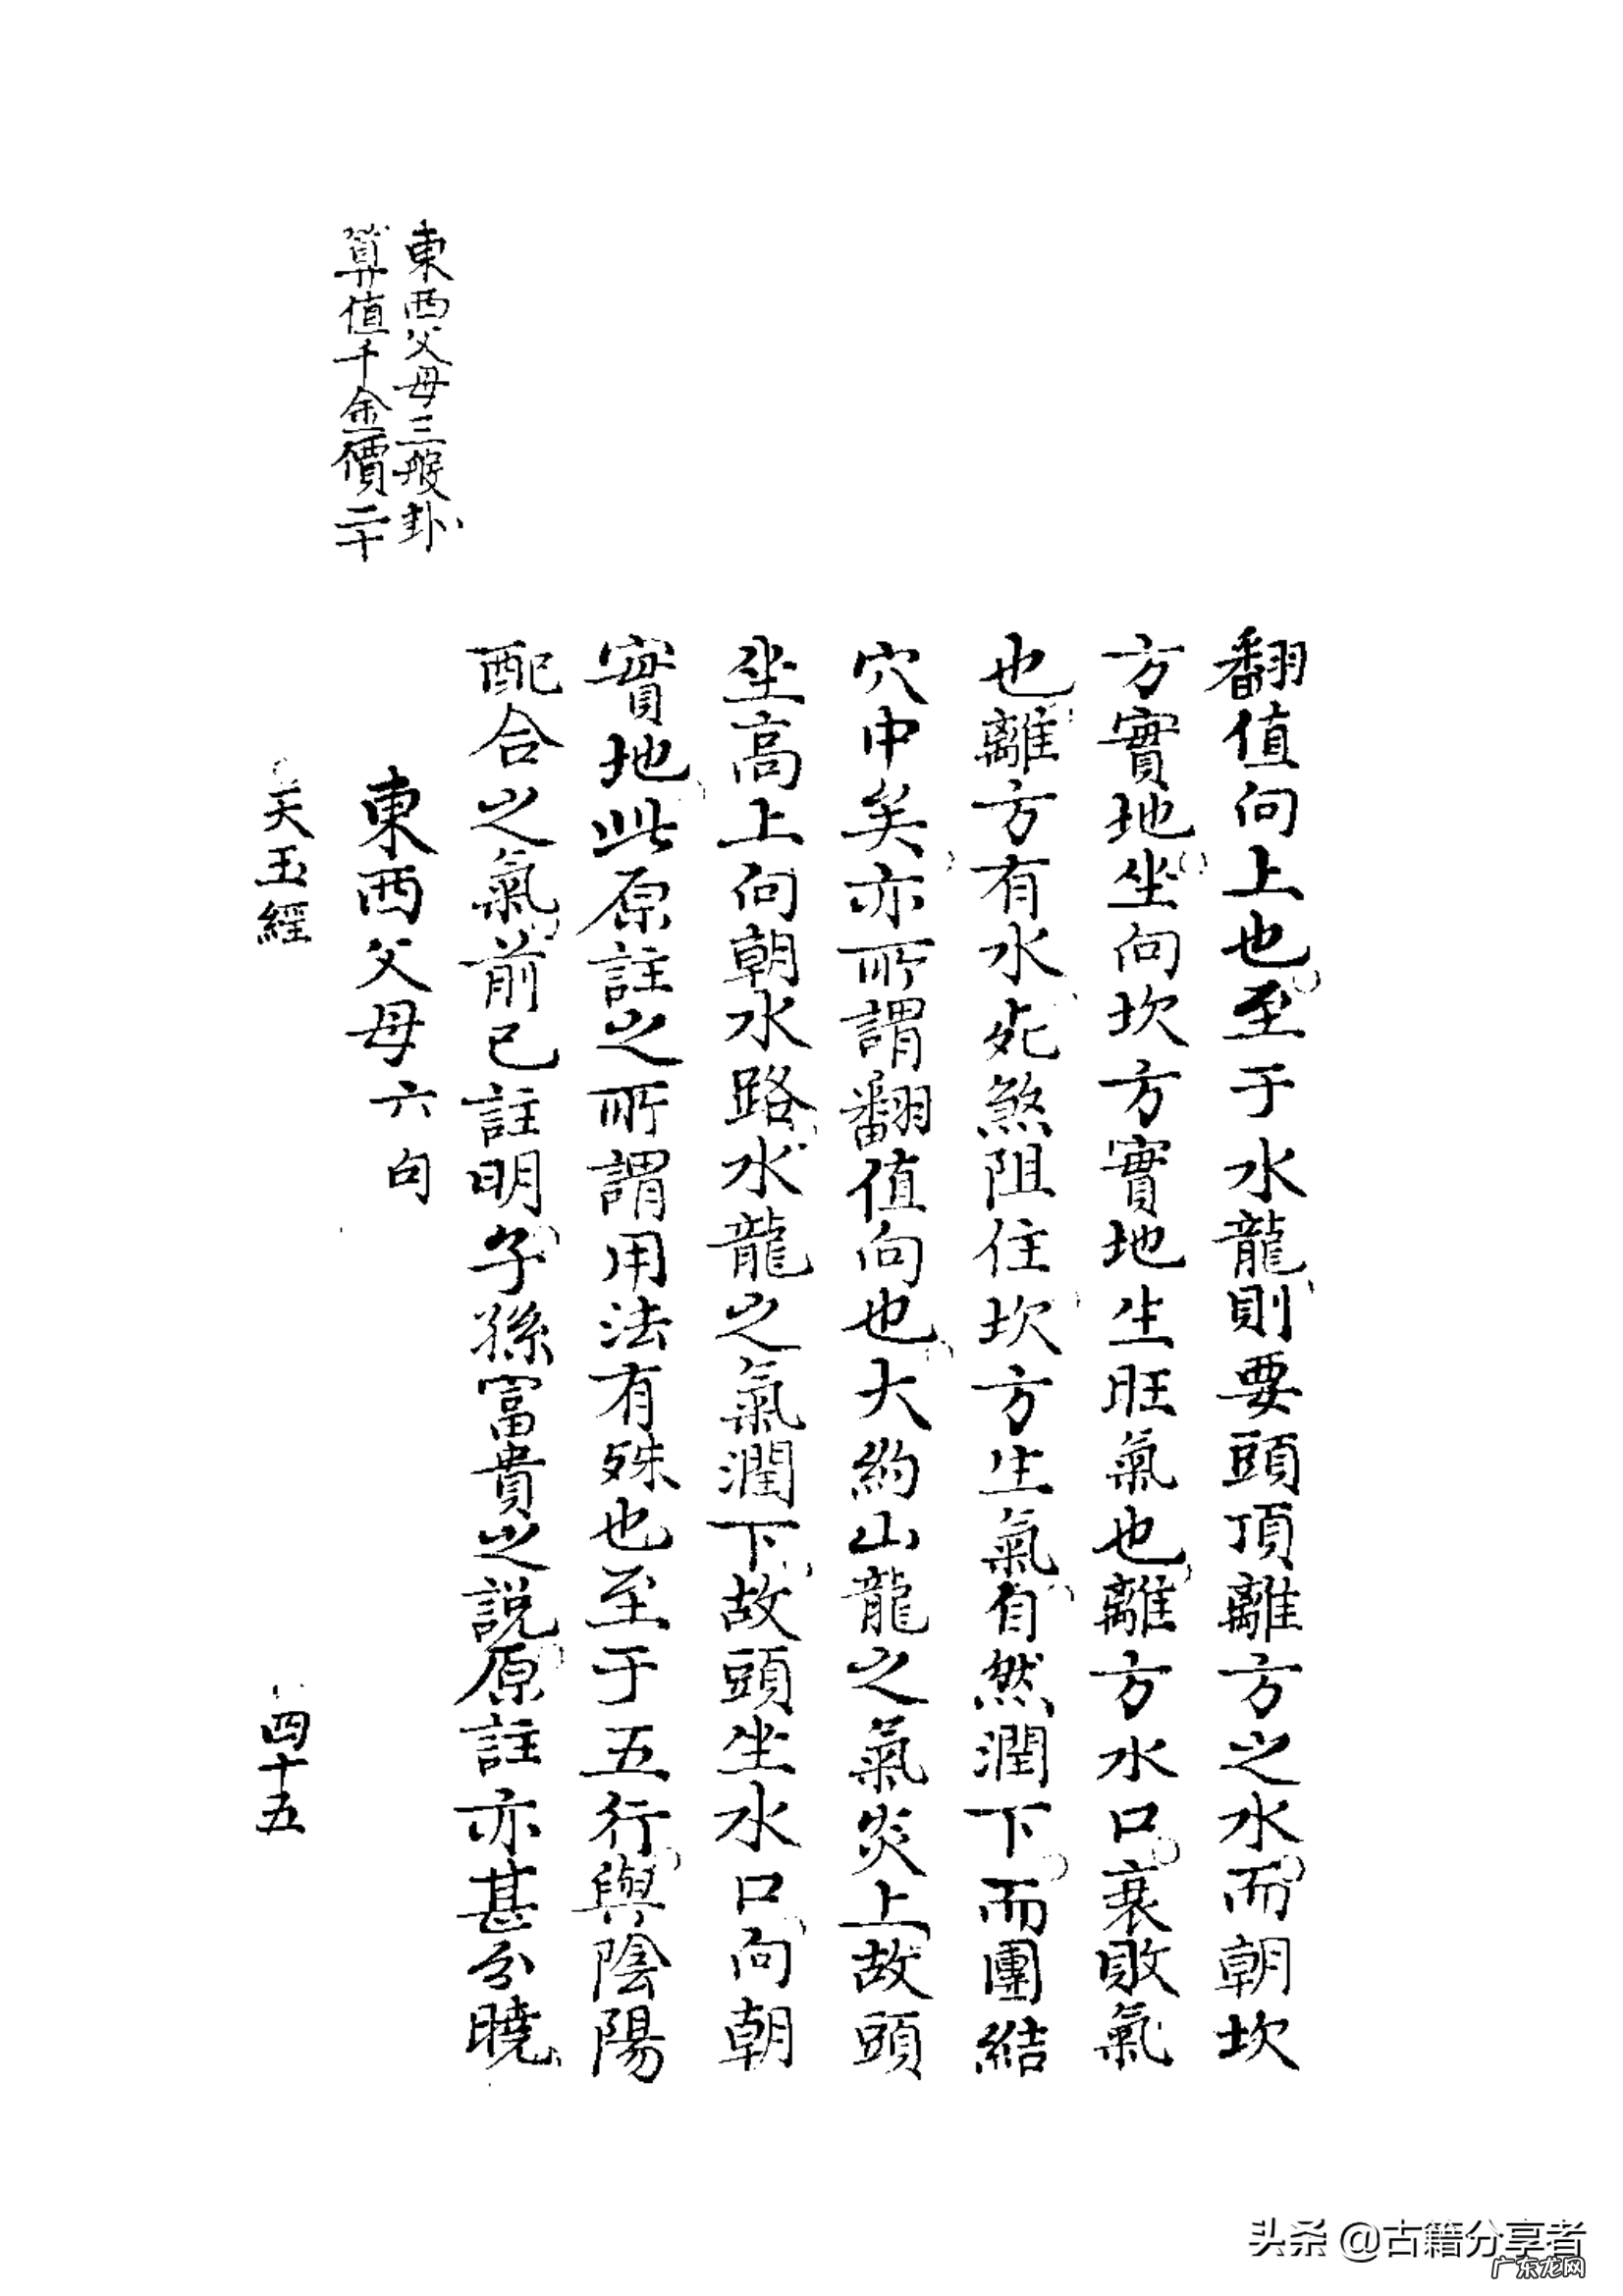 翻值向上也至于水龍則要頭頂離方之水而朝坎
方實地坐向坎方實地生旺氣也離方水口衰敗氣
也離方有水死煞阻住坎方生氣自然潤下而團結
穴中矣亦所謂翻值向也大約山龍之氣炎上故頭
坐高上向朝水路水龍之氣潤下故頭坐水口向朝
實地此原註之所謂用法有殊也至于五行與陰陽
配合之氣前已註明子孫富貴之説原註亦甚分曉
東西父母三般卦
算值千金價二十
東西父母六句
天玉經
四十五
头条 @古籍分享者
广东龙网